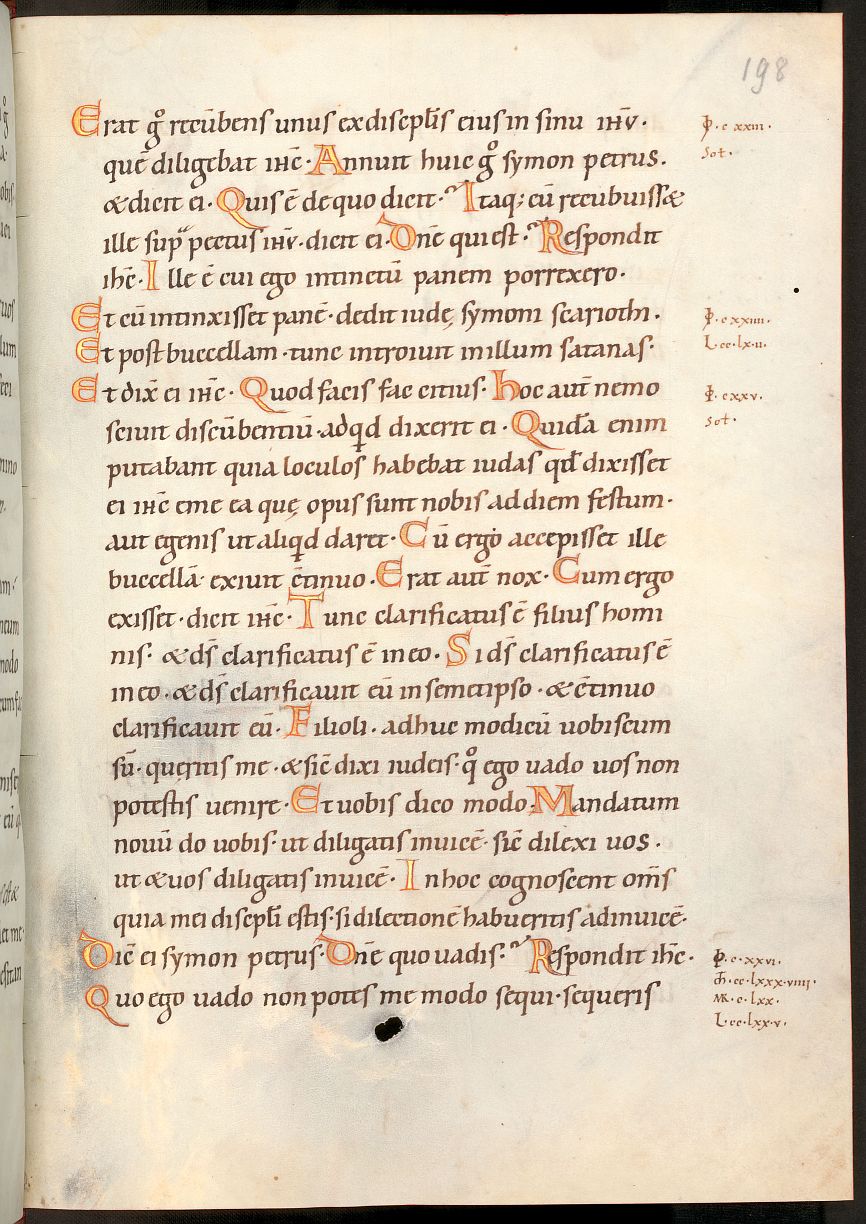 198
Erat gͦ recūbens unus ex discipl̄is eius in sinu ihū.
quē diligebat ihc̄. Annuit huic gͦ symon petrus.
& dicit ei. Quis ē de quo dicit. Itaq; cū recubuiss&
ille sup̄ pectus ihū. dicit ei. Dn̄e qui est. Respondit
ihc̄. Ille ē cui ego intinctū panem porrexero.
Et cū intinxisset panē. dedit iudę symoni scariothi.
Et post buccellam. tunc introiuit in illum satanas.
Et dix̄ ei ihc̄. Quod facis fac citius. hoc aut̄ nemo
sciuit discūbentiū. adqd dixerit ei. Quidā enim
putabant quia loculos habebat iudas qd̄ dixisset
ei ihc̄ eme ea quę opus sunt nobis ad diem festum.
aut egenis ut aliqd daret. Cū ergo accepisset ille
buccellā. exiuit c̄tinuo. Erat aut̄ nox. Cum ergo
exisset. dicit ihc̄. Tunc clarificatus ē filius homi
nis. & ds̄ clarificatus ē in eo. Si ds̄ clarificatus ē
in eo. & ds̄ clarificauit eū in semetipso. & c̄tinuo
clarificauit eū. Filioli. adhuc modicū uobiscum
sū. queritis me. & sic̄ dixi iudeis. qͦ ego uado uos non
potestis uenire. Et uobis dico modo. Mandatum
nouū do uobis. ut diligatis inuicē. sic̄ dilexi uos.
ut & uos diligatis inuicē. In hoc cognoscent om̄s
quia mei discipl̄i estis. si dilectionē habueritis adinuicē.
Dic̄ ei symon petrus. Dn̄e quo uadis. Respondit ihc̄.
Quo ego uado non potes me modo sequi. sequeris
.c xxiii.
Sol.
.c xxiiii.
L. cc.lx.ii.
.c xxv.
sol.
.c.xxvi.
.cc.lxxx.viiii.
MR.c.lxx.
L.cc.lxx.v.